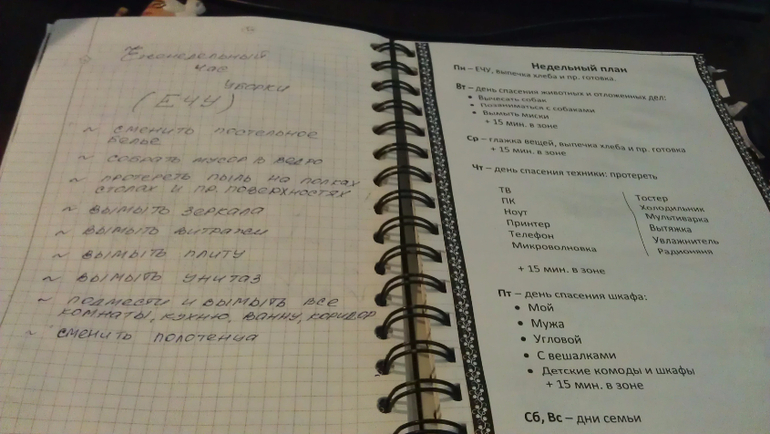 Еженедельный
час
уборки
(ЕЧУ)
~ сменить постельное
белье
~ собрать мусор в ведро
~ протереть пыль на полках
столах и пр. поверхностях
~ вымыть зеркала
~ вымыть витражи
~ вымыть плиту
~ вымыть унитаз
~ подмести и вымыть все
комнаты, кухню, ванну, коридор
~ сменить полотенца
Недельный план
Пн – ЕЧУ, выпечка хлеба и пр. готовка.
Вт – день спасения животных и отложенных дел:
• Вычесать собак
• Позаниматься с собаками
• Вымыть миски
+ 15 мин. в зоне
Ср – глажка вещей, выпечка хлеба и пр. готовка
+ 15 мин. в зоне
Чт – день спасения техники: протереть
ТВ
ПК
Ноут
Принтер
Телефон
Микроволновка
Тостер
Холодильник
Мультиварка
Вытяжка
Увлажнитель
Радионяня
+ 15 мин. в зоне
Пт – день спасения шкафа:
• Мой
• Мужа
• Угловой
• С вешалками
• Детские комоды и шкафы
+ 15 мин. в зоне
Сб, Вс – дни семьи